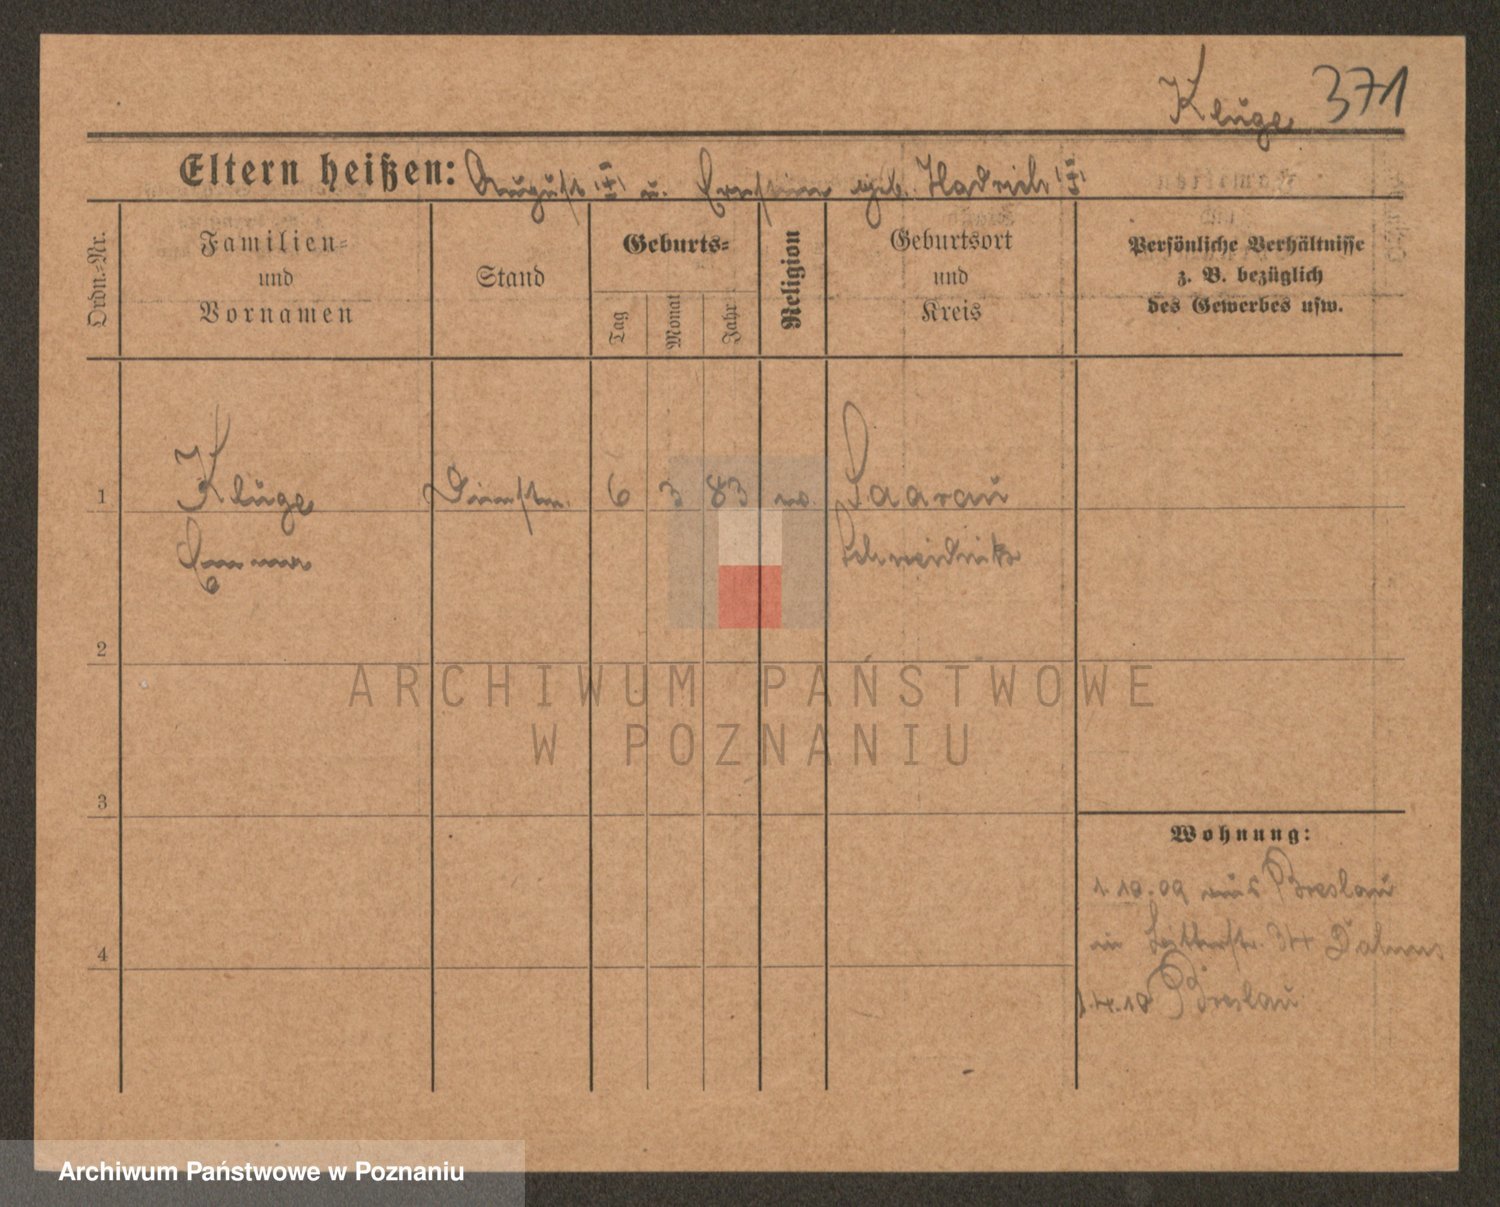 Kluge 371
Eltern heißen: August (†) u. Ernstine geb. Hadrich (†)
Ordn.-Nr.
Familien-
und
Vornamen
Stand
Geburts-
Tag
Monat
Jahr
Religion
Geburtsort
und
Kreis
Persönliche Verhältnisse
z. B. bezüglich
des Gewerbes usw.
1 Kluge Dienstm. 6 3 83 ev. Saarau
Emma Schweidnitz
2
3
4
Wohnung:
1.10.09 aus Breslau
in 34
1.4.10 Breslau
ARCHIWUM PAŃSTWOWE
W POZNANIU
Archiwum Państwowe w Poznaniu